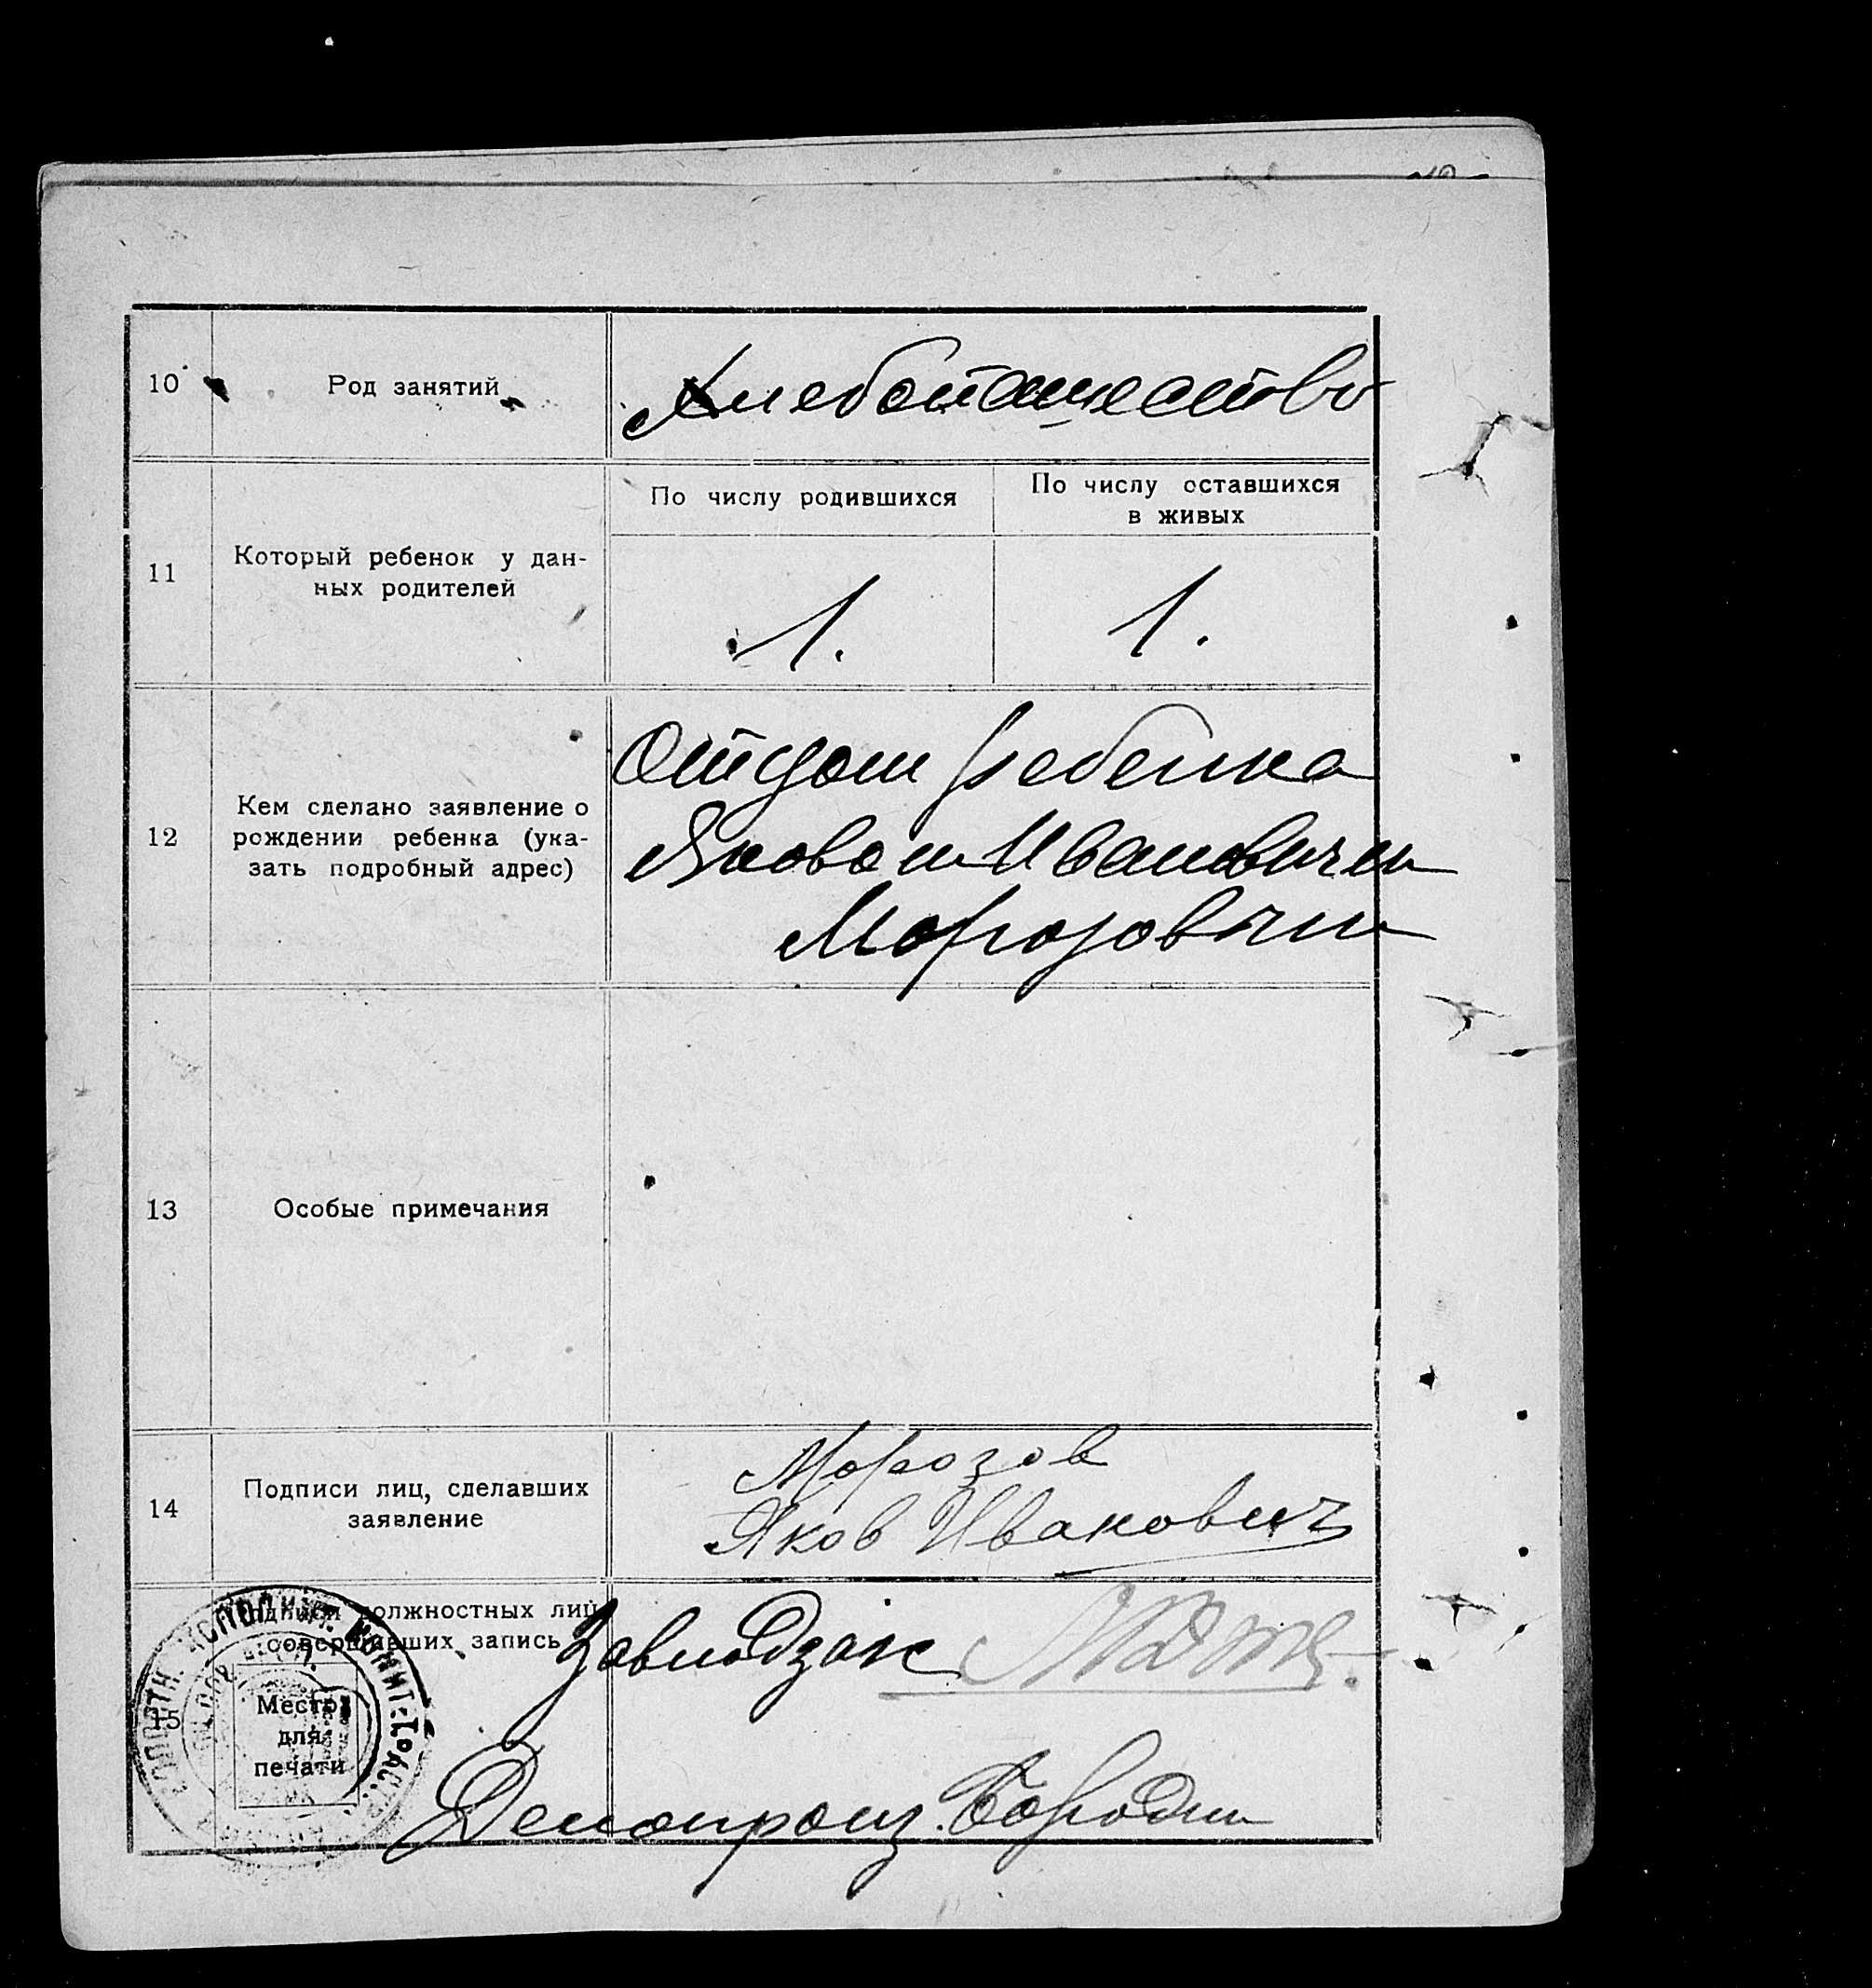 10
Род занятий
Хлебопашество
11
Который ребенок у дан-
ных родителей
По числу родившихся
По числу оставшихся
в живых
1.
1.
12
Кем сделано заявление о
рождении ребенка (ука-
зать подробный адрес)
Отцом ребенка
Яковом Ивановичем
Морозовым
13
Особые примечания
14
Подписи лиц, сделавших
заявление
Морозов
Яков Иванович
15
Подписи должностных лиц
совершивших запись
Завподзаг
Место
для
печати
Делопроиз. Бородин